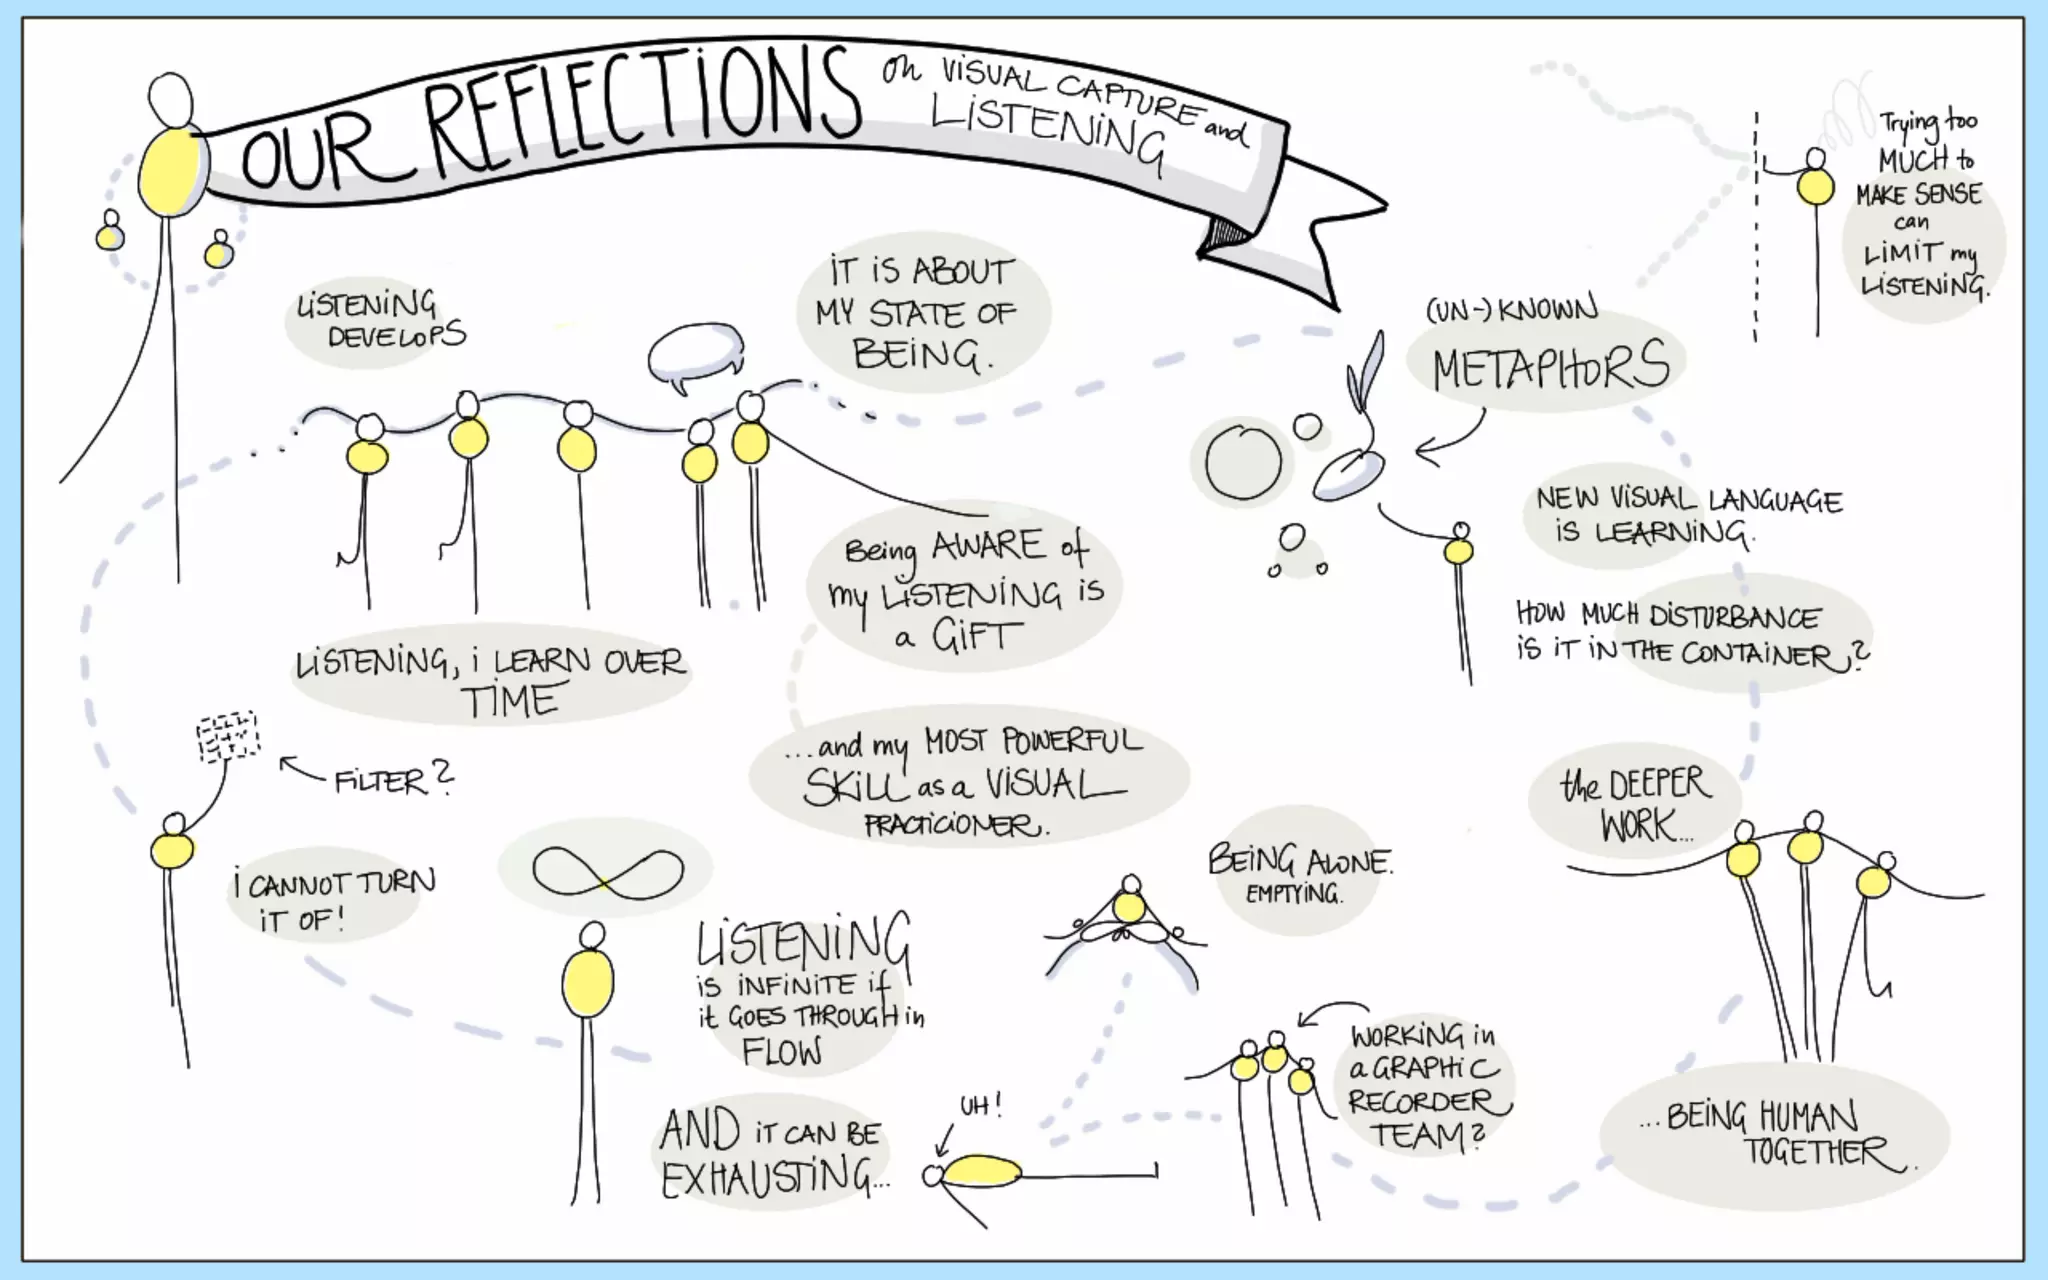 OUR REFLECTIONS on VISUAL CAPTURE and
LISTENING
Trying too
MUCH to
MAKE SENSE
can
LIMIT my
LISTENING.
LISTENING
DEVELOPS
IT IS ABOUT
MY STATE OF
BEING.
(UN-) KNOWN
METAPHORS
NEW VISUAL LANGUAGE
IS LEARNING.
HOW MUCH DISTURBANCE
IS IT IN THE CONTAINER?
Being AWARE of
my LISTENING is
a GIFT
LISTENING, I LEARN OVER
TIME
...and my MOST POWERFUL
SKILL as a VISUAL
PRACTICIONER.
FILTER?
I CANNOT TURN
IT OF!
LISTENING
IS INFINITE if
it GOES THROUGH in
FLOW
AND IT CAN BE
EXHAUSTING...
UH!
BEING ALONE.
EMPTYING.
WORKING in
a GRAPHIC
RECORDER
TEAM?
the DEEPER
WORK...
...BEING HUMAN
TOGETHER.